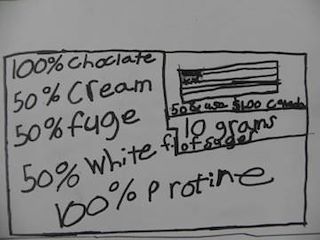 100% choclate
50% Cream
50% fuge
50% white f
100% protine
50¢ USA $1.00 Canada
10 grams
of suger